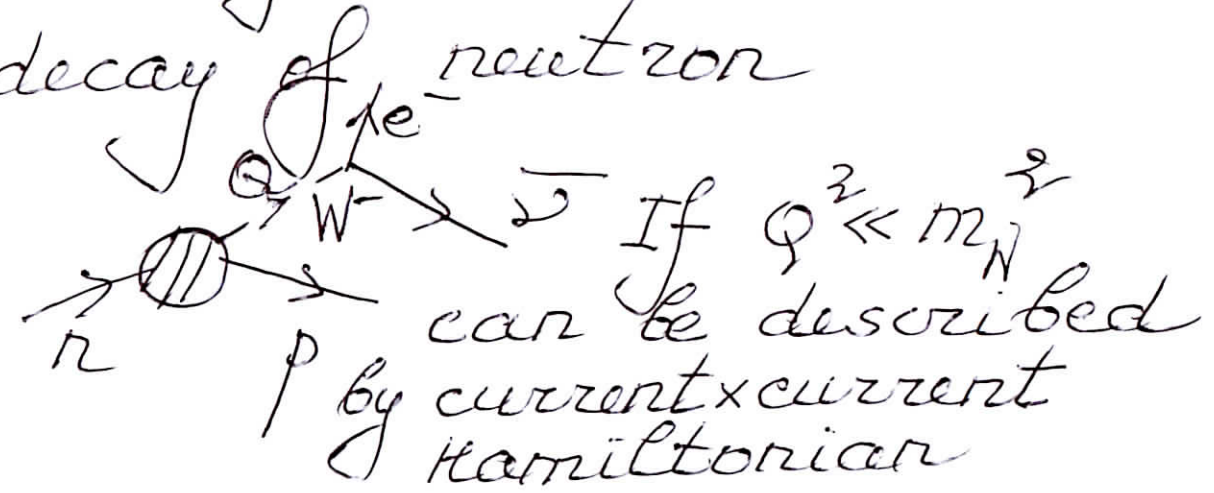 decay of neutron
e⁻
Q W⁻ ν̄ If Q² ≪ m_W²
n p can be described
by current×current
Hamiltonian